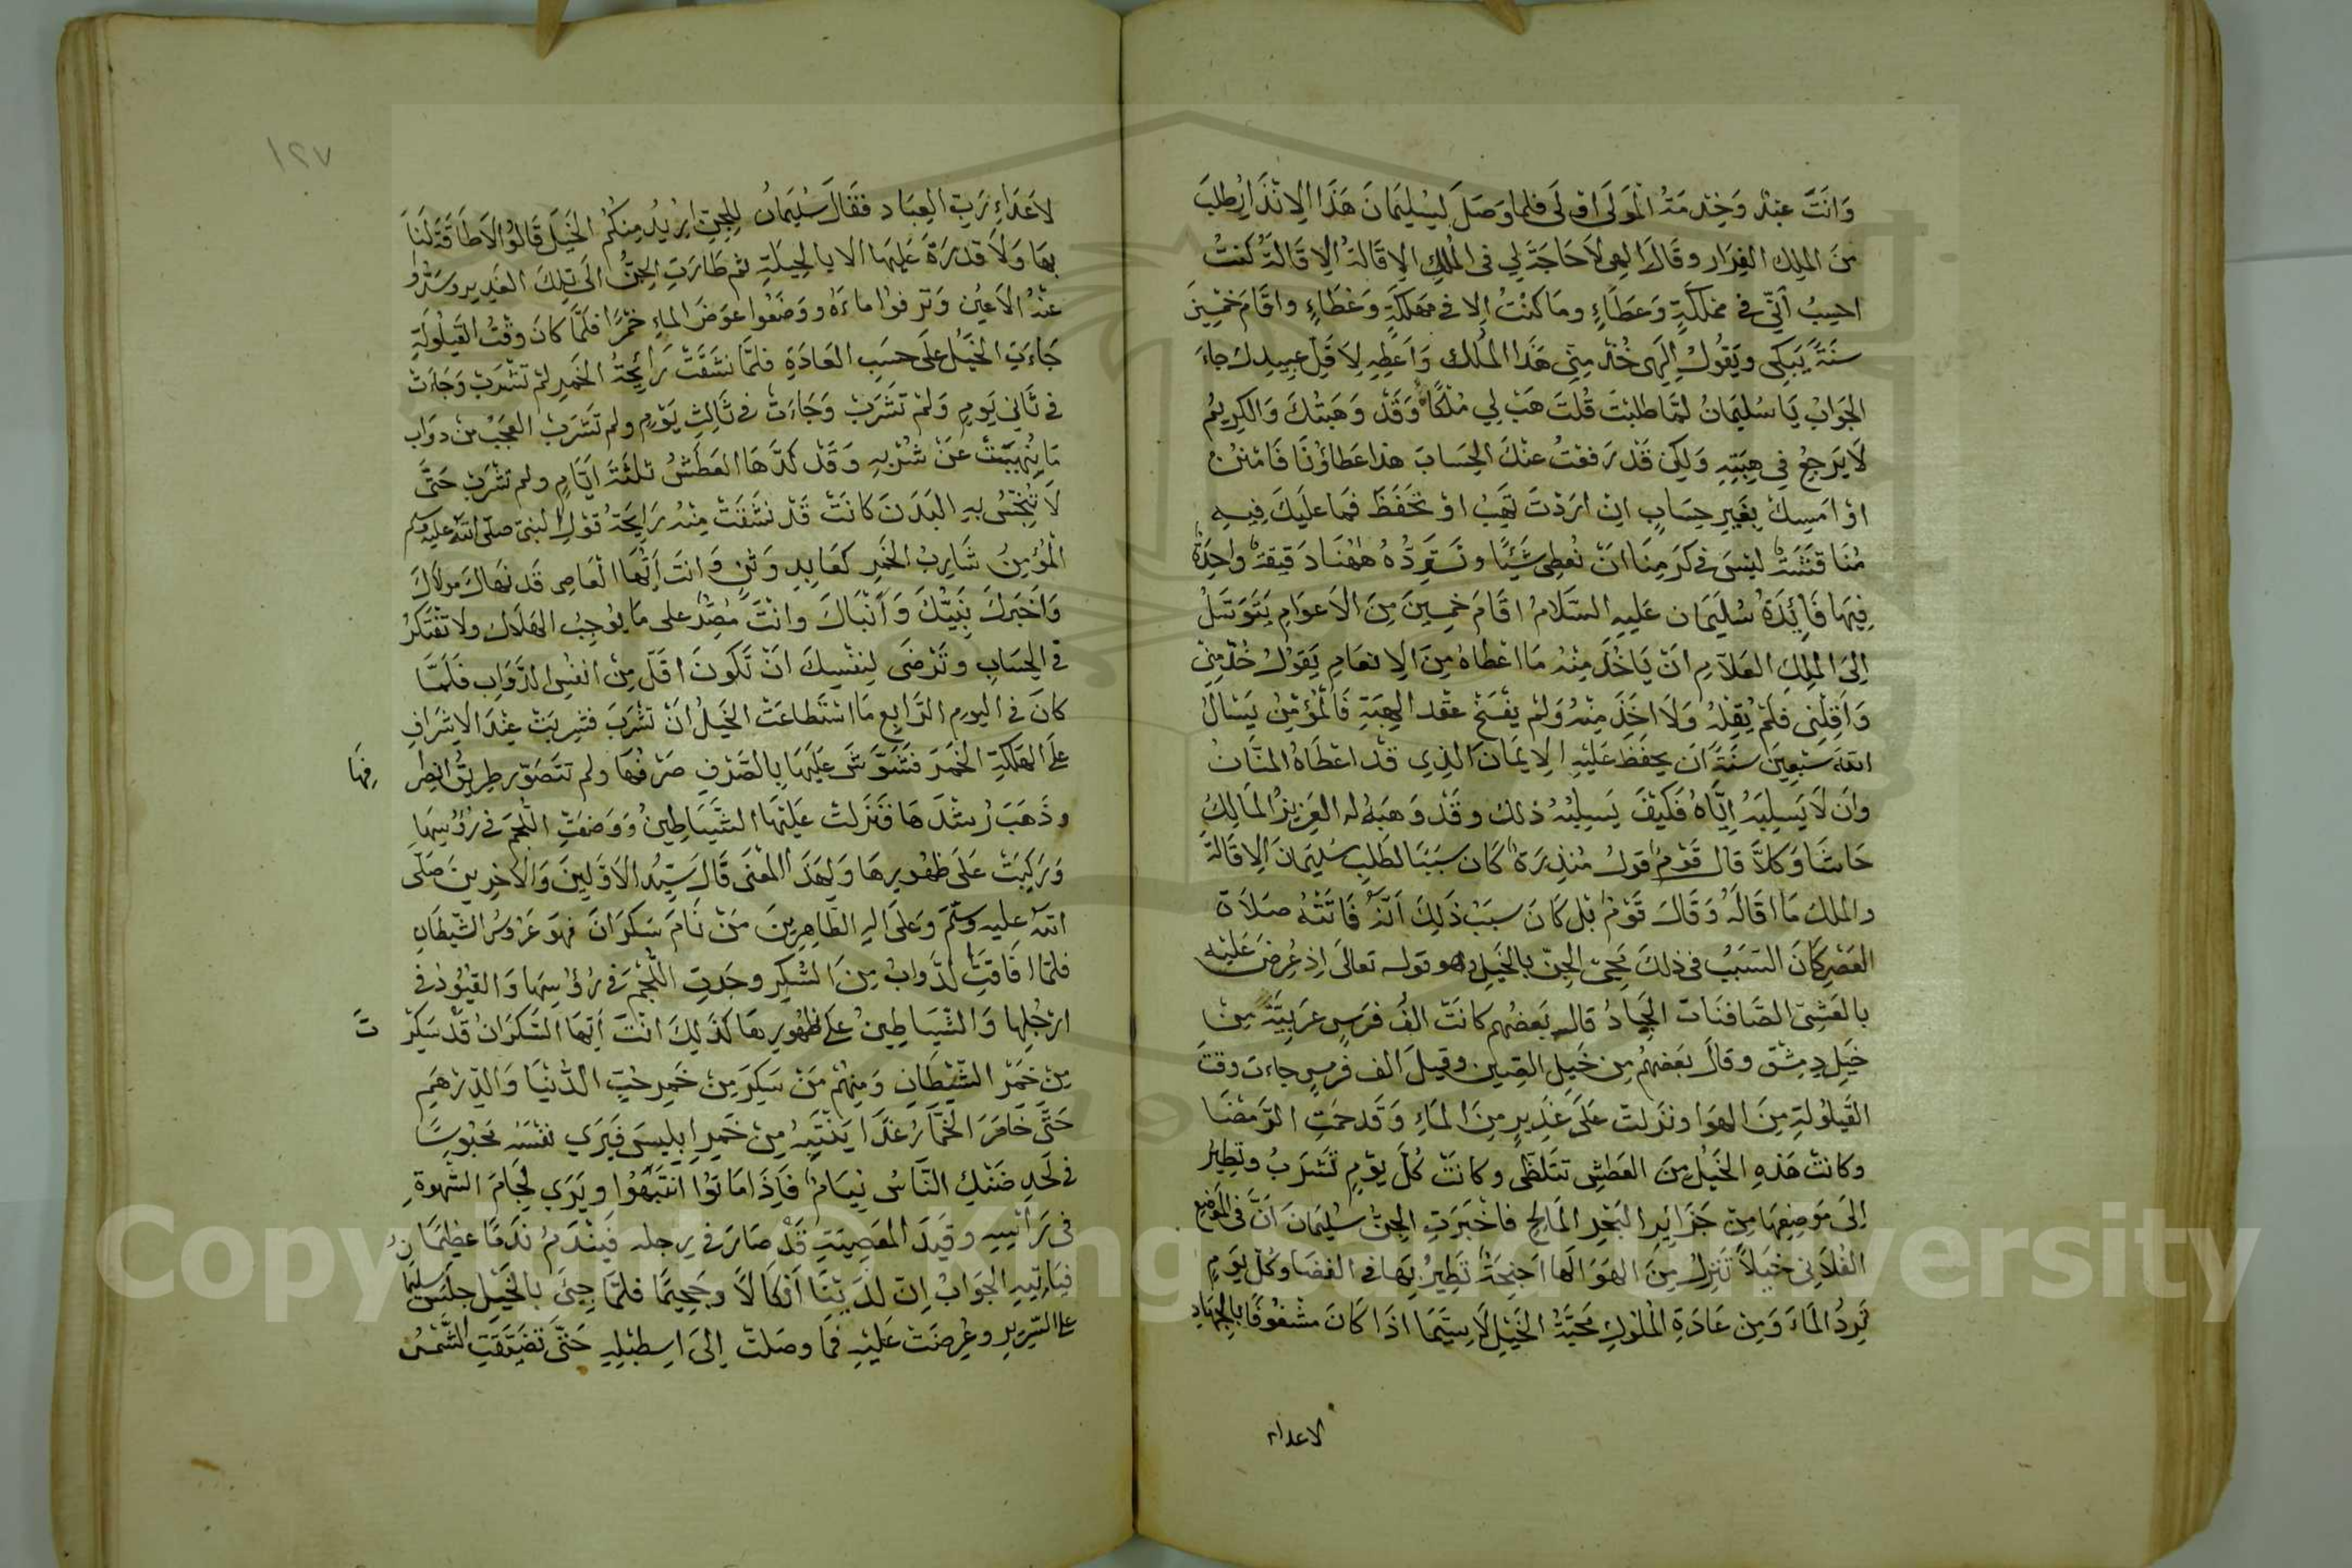 وَانَتَ عَبْد وَخِدْمَةُ الْمَوْلَى اوْلَى فلما وَصَلَ لِسُلَيمَانَ هَذَا الِانْذَارُ طلبَ
مِنَ الملِك الفِرَار وقَالَ الهى لاَ حَاجَةَ لِي فى الْمُلكِ الِاقَالةَ الِاقَالَةَ كُنتُ
احسِبُ اَنّي في مملكَةٍ وَعَطَاءٍ وما كنْتُ اِلا في مَهلكَةٍ وَغطَاءٍ واقَامَ خَمْسِينَ
سنَةً يَبكى ويَقُولُ اِلَهى خُذ مِنّى هَذَا المُلك وَاَعْطِهِ لاَقِلّ عبيدِك جاءَ
الجَوَابُ يَا سُليمَانُ لمَّا طلبْتَ قُلتَ هَبْ لي مُلكًا وَقَدْ وَهَبتُكَ وَالكريمُ
لَا يَرجعُ في هِبَتِهِ وَلكِن قَدْ رَفعْتُ عنْكَ الحِسَابَ هذا عَطاؤنَا فَامْنُنْ
اوْ امْسِكْ بِغَيرِ حِسَابٍ انْ ارَدْتَ تَهَبُ اوْ تَحَفَظَ فمَا عليَكَ فِيهِ
مُنَاقشَةٌ ليْسَ فى كَرَمِنَا انْ نُعطى شَيْئًا ونَستَرِدُّهُ هٰهُنَا دَقيقَةٌ واحِدَةٌ
فِيهَا فَائِدَةٌ سُلَيمَان عَليهِ السَّلَامُ اقَامَ خمسِينَ مِنَ الاَعوَامِ يَتَوَسَّلُ
اِلىَ المَلِكِ العَلاَّمِ انْ يَاخُذَ مِنْهُ مَا اعْطاهُ مِنَ الِانعَامِ يَقوْلُ خُذْ مِنّي
وَاَقِلْنِى فَلَمْ يُقِلْهُ وَلَا اخَذَ مِنْهُ وَلمْ يفْسَخْ عقْد الهِبَةِ فَالْمُؤمِنُ يَسْالُ
اللهَ سَبْعِينَ سَنَةً اَن يحفَظَ عَلَيْهِ الِايمَانَ الَّذِي قَدْ اعْطَاهُ المنَّانُ
وان لَا يَسلِبَهُ اِيَّاهُ فَكيْفَ يَسلِبُهُ ذلك وقَدْ وَهبَهُ له العَزِيزُ المَالِكُ
حَاشَا وَكلَّا قال قَوْمٌ قولُ مُنذِرَة كَان سَبَبًا لطَلبِ سُليمَانَ الِاقَالَةَ
والملك مَا اقَالَهُ وَقَالَ قَوْمٌ بْل كَانَ سبَبُ ذَلِكَ اَنّهُ فَاتَتْهُ صلَاةُ
العَصْرِ كَانَ السَبَبُ فى ذلكَ مَجىِّ الجِنّ بالخَيلِ وهو قوله تعالىَ اِذْ عُرِضَ عَليْه
بالعَشِيّ الصَّافنَات الجِيادُ قال بَعضُهم كانَتْ الفُ فرَسٍ عَربِيَّةٌ مِنْ
خَيلِ دِمِشْق وقالَ بعَضهُم مِن خَيلِ الصّين وقيلَ الف فَرسٍ جاءت وقتَ
القَيلُولَةِ مِنَ الهوَا ونزَلتْ عَلَى غَدِيرٍ مِنَ المَاءِ وَقَدحَمَتِ الرَّمْضَا
وكانتْ هَذِهِ الخَيْلُ مِنَ العَطَشِ تتَلَظّى وكانَتْ كُلَّ يوْمٍ تَشرَبُ وتَطِيرُ
اِلَى مَوضِعِهَا مِن جَزَائِر البَحْرِ المَالِحِ فاخْبَرَتِ الجِنُّ سُليْمَانَ انَّ فى المَوْضِع
الفُلَانِى خَيلاً تَنزِلُ مِنَ الهَوَا لَهَا اجْنِحَةٌ تَطِيرُ بِهَا فى الفضَا وكُلَّ يوْمٍ
تَرِدُ المَاءَ وَمِنْ عَادَةِ المُلوْكِ مَحَبَّةُ الخَيْلِ لَا سِيَّمَا اذَا كَانَ مشْغُوفًا بالجِهَادِ
لاعداء
١٢٧
لاَعدَاءِ رَبِّ العِبَاد فقَالَ سُلَيمَانُ لِلجِنّ اُرِيْدُ مِنكُم الخَيلَ قَالوُا لَاطَاقَةَ لَنَا
بهَا وَلَا قدرَةَ عَليهَا الا بالحِيلَةِ ثم طَارَتِ الجِنُّ الَى تِلكَ الغدِير وسَتَرُو
عنْهُ الاَعيُن وَنزفوْا مَاءَهُ ووَضَعُوا عوَضَ الماءِ خمْرًا فلَمَّا كانَ وقْتُ القَيلُولَةِ
جَاءَتِ الخَيْلُ علَى حسَبِ العَادَةِ فلمَّا نشَقَتْ رَائِحَةَ الخَمرِ لمْ تشْرَبْ وَجَاءَتْ
فى ثَانى يَومٍ وَلمْ تَشْرَبْ وَجَاءَتْ فى ثَالِثِ يَوْمٍ ولم تَشرَبْ العجَبُ من دوَاب
مَا نُهِيَتْ عَنْ شُرْبِهِ وَقَدْ كَدَّهَا العَطَشُ ثلثَةَ ايَّامٍ ولم تشْرَبْ حَتَّى
لَا يُنَجَّسُ بِهِ البَدَنَ كانَتْ قَدْ نشَقَتْ مِنْهُ رَايِحَةُ قوْلِ النبىّ صلّى اللهُ عليه وسلم
الْمُؤمِنُ شَارِبُ الخَمرِ كعَابِدِ وَثنٍ وَانتَ اَيُّهَا العَاصِى قَد نهَاكَ مولَاكَ
وَاَخبَرَكَ نبَيُّكَ وَاَنْبَاكَ وانْتَ مُصِرٌّ على مَا يوُجِبُ الهَلَاك ولا تفْتَكرُ
فى الحِسَابِ وتَرْضَى لِنفْسِكَ انْ تَكونَ اقَلَّ مِنْ انفُسِ الدَّوَابِ فَلَمَّا
كانَ فى اليومِ الرَّابعِ مَا اسْتَطاعَتْ الخَيلُ انْ تشْرَبَ فشربَتْ عِنْدَ الاِشْرَافِ
علَى الهَلكَةِ الخَمْرَ فَتَشَوَّشَ عَلَيهَا بِالصّرْفِ صَرْفُهَا ولم تتَصَوّر طريقُ انصرا
فِهَا
وذَهَبَ رُشْدُهَا فَنَزلتْ عَلَيْهَا الشَّيَاطِينُ وَوَضعَتِ اللُّجمَ فى رُؤسِهَا
وَرَكِبَتْ عَلَى ظهُورِهَا وَلِهَذَا المعْنَى قَالَ سَيِّدُ الاَوَّلِينَ وَالاخِرِين صَلّى
اللهُ عليه وسَلّم وَعَلَى الهِ الطَّاهِرِينَ مَنْ نَامَ سَكرَانَ فهوَ عَرُوسُ الشَّيطَانِ
فلمَّا افَاقتِ الدَّوَابُ مِنَ السُّكْرِ وجَدتِ اللُّجُمَ فى رُؤسِهَا وَالقُيُودُ فى
ارْجُلِها وَالشَّيَاطِينُ عَلى ظهُورِهَا كَذَلِكَ انْتَ اَيّهَا السَّكرَانُ قَدْ سَكِرْ
تَ
مِنْ خمْرِ الشَّيْطَانِ وَمِنهُمْ مَنْ سَكِرَ مِنْ خَمرِ حُبّ الدُّنْيَا وَالدّرْهَمِ
حَتَّى خَامَرَ الخُمَّارُ غدًا يَنْتَبِهُ مِنْ خَمرِ اِبلِيسَ فَيَرَي نفْسَهُ مَحبُوسًا
فى لَحْدٍ ضَنْكٍ النَّاسُ نِيَامٌ فَاِذَا مَاتوُا انتَبَهُوْا ويَرَي لِجَامَ الشَّهْوَةِ
فى رَاْسِهِ وقَيدَ المَعصِيَةِ قَدْ صَارَ فى رِجله فَينْدَمُ نَدَمًا عظِيْمًا
فيَاْتِيهِ الجوَابُ اِنّ لدَيْنَا اَنْكَالاً وجَحِيمًا فلمَّا جِئَ بالخَيْلِ جلسَ سليما
نُ
على السّرِيرِ وعُرِضَتْ عَلَيْهِ فمَا وصَلتْ اِلىَ اسِطَبْلِهِ حَتَّى تضَيَّقَتِ الشَّمْسُ
Copyright © King Saud University